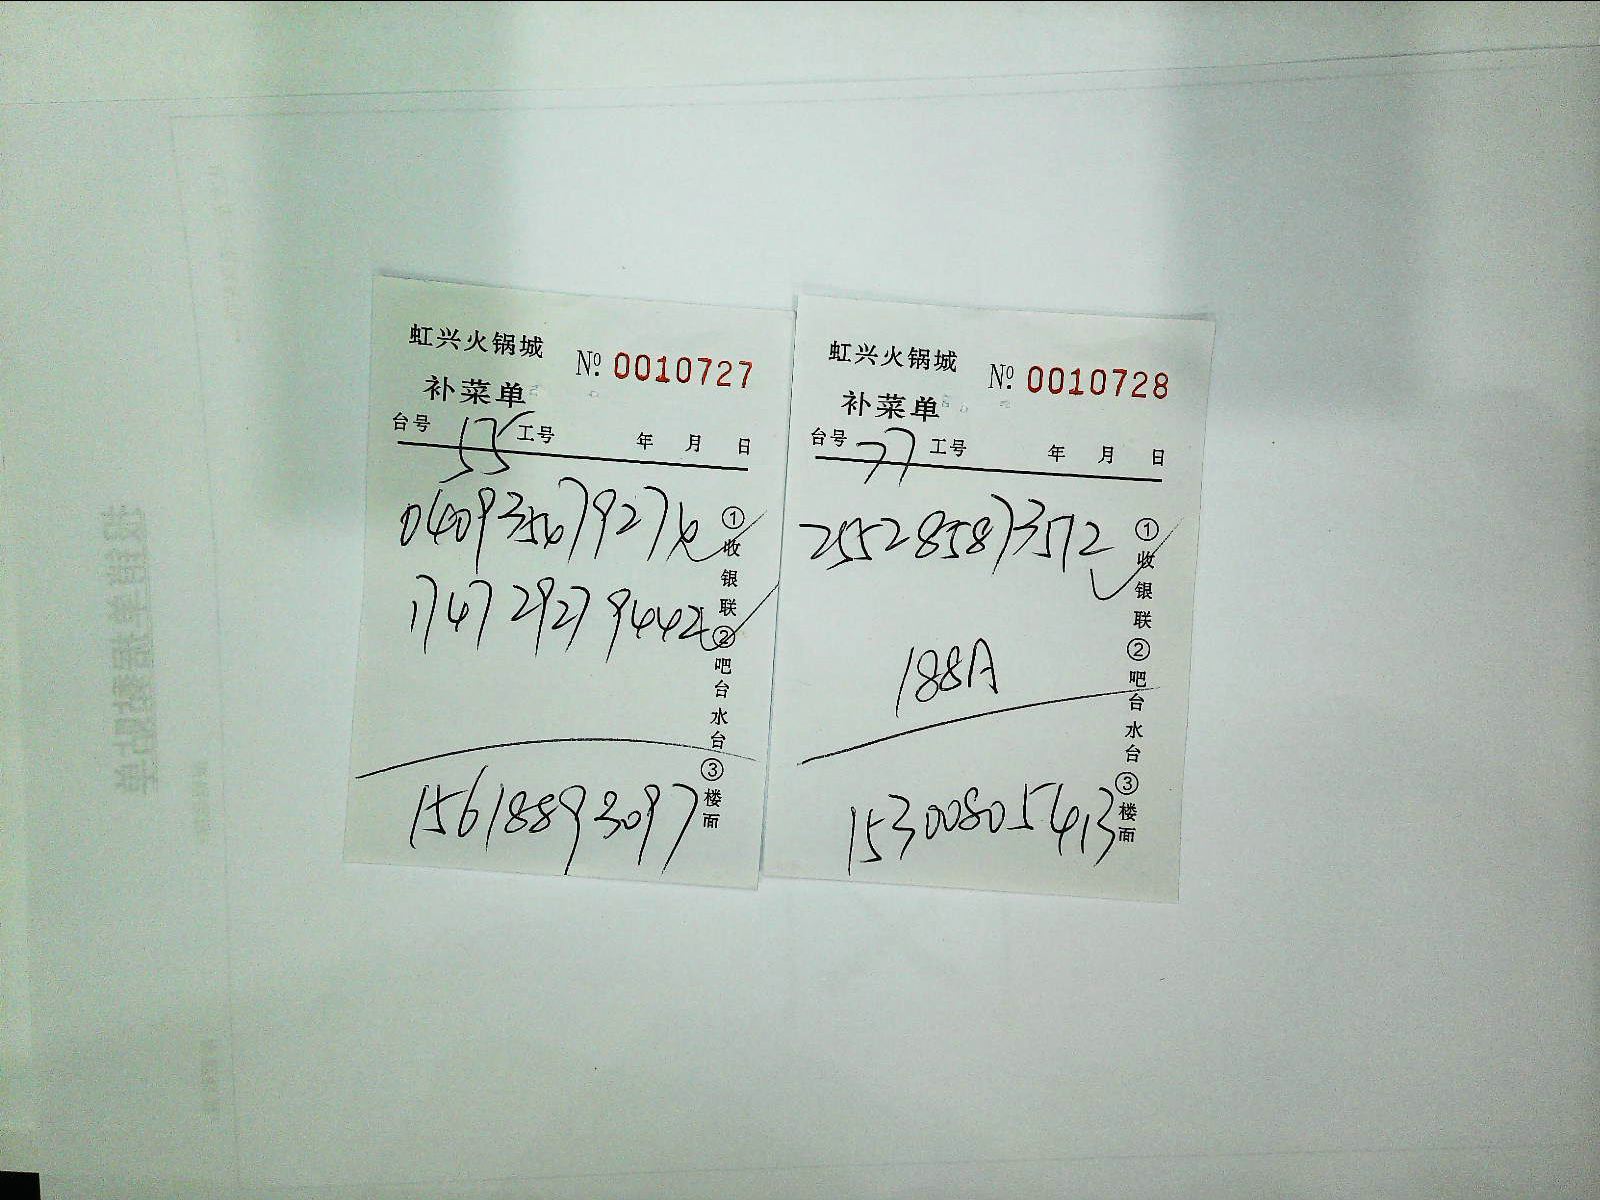 虹兴火锅城
№ 0010727
补菜单
台号 55 工号 年 月 日
040935679276
174729279442
15618893097
①收银联②吧台水台③楼面
虹兴火锅城
№ 0010728
补菜单
台号 77 工号 年 月 日
255285873572
188A
15300805413
①收银联②吧台水台③楼面